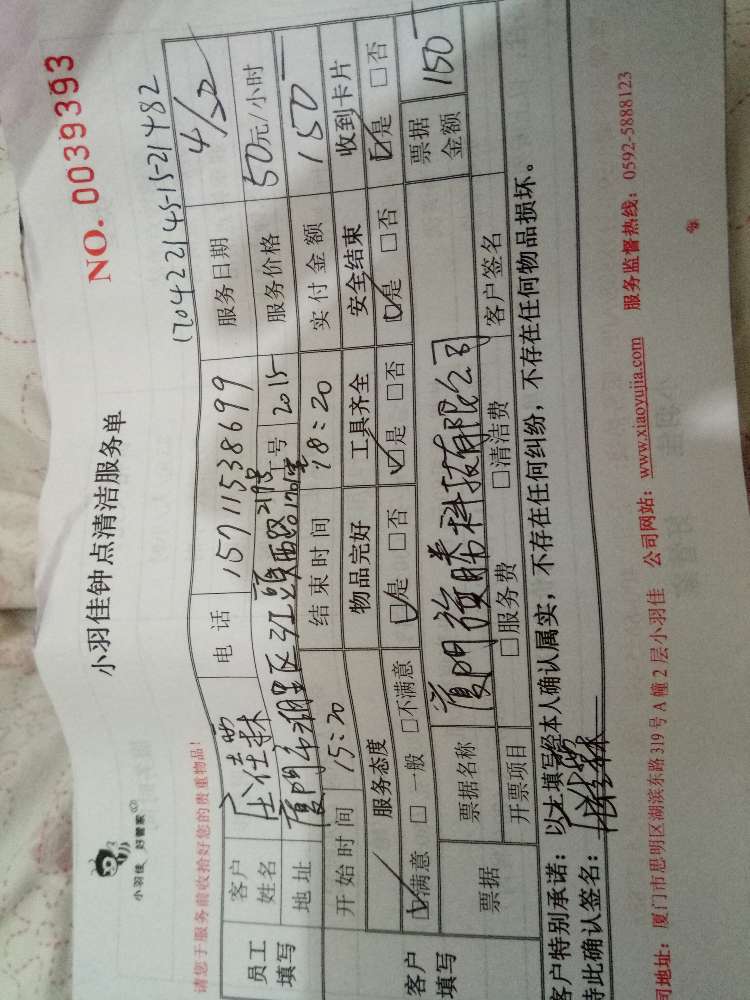 小羽佳 好管家
小羽佳钟点清洁服务单
NO. 0039393
请您于服务前收拾好您的贵重物品!
170422145-15-21482
员工填写
客户姓名 庄佳霖 电话 15711538699 服务日期 4/22
地址 厦門市湖里区江頭西路219号 工号 2015 服务价格 50元/小时
开始时间 15:20 结束时间 18:20 实付金额 150
客户填写
服务态度 物品完好 工具齐全 安全结束 收到卡片
☑满意 □一般 □不满意 ☑是 □否 ☑是 □否 ☑是 □否 ☑是 □否
票据 票据名称 科技有限公司 票据金额 150
开票项目 □服务费 □清洁费 客户签名
客户特别承诺:以上填写经本人确认属实,不存在任何纠纷,不存在任何物品损坏。
特此确认签名:
司地址:厦门市思明区湖滨东路319号A幢2层小羽佳 公司网站:www.xiaoyujia.com 服务监督热线:0592-5888123